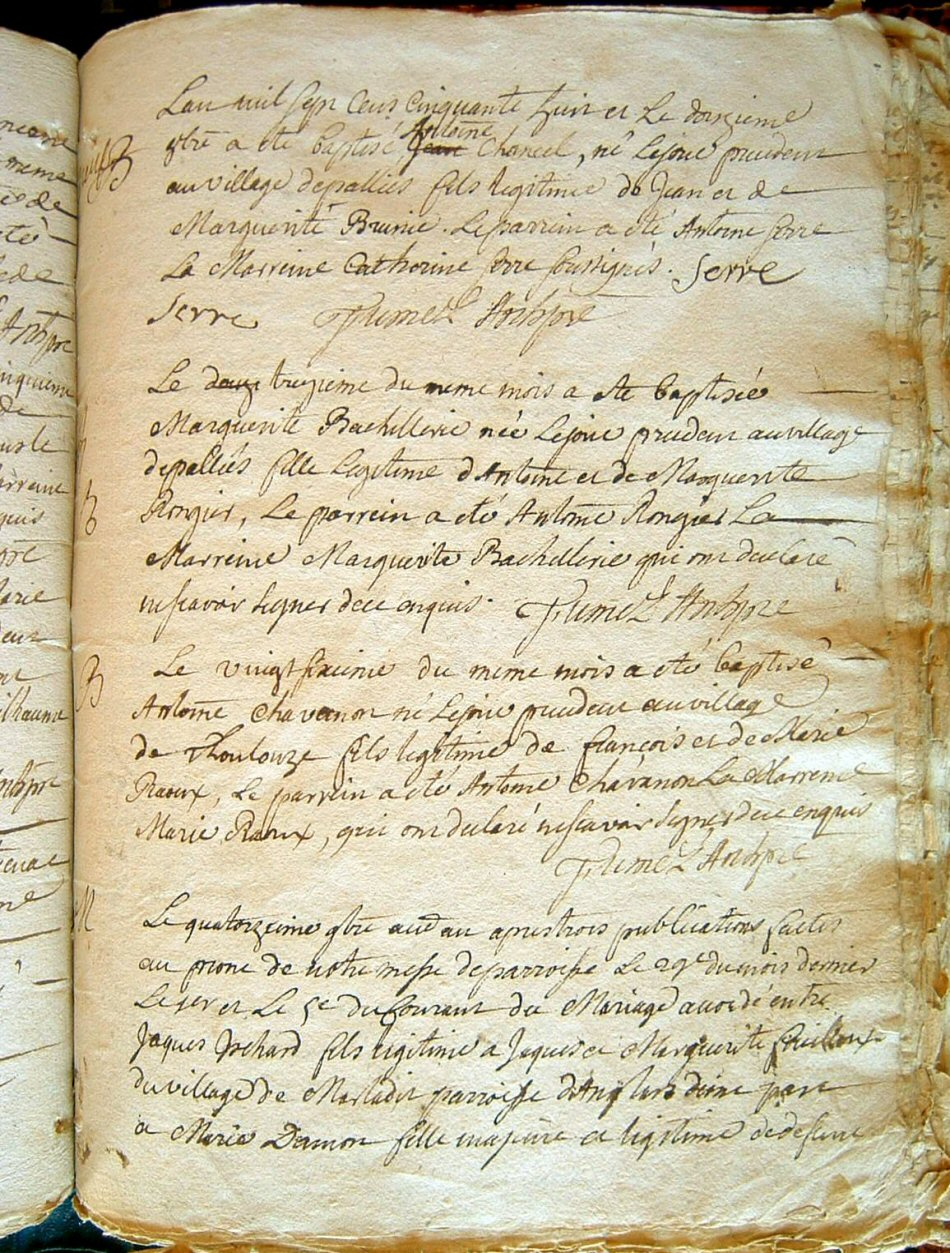 B
L'an mil sept cens cinquante huit et Le douzieme
9bre a eté baptisé Antoine Jean Chancel, né Lejour precedent
au village depallies fils legitime de Jean et de
Marguerite Brunie. Le parrein a eté Antoine Serre
La Marreine Catherine Serre soussignés. Serre
Serre
Le deux treizieme du meme mois a eté baptisée
Marguerite Bachellerie née Lejour precedent au village
depalliés fille Legitime d'Antoine et de Marguerite
B Rongier, Le parrein a eté Antoine Rongier La
Marreine Marguerite Bachellerie qui ont declaré
nescavoir signer dece enquis.
B Le vingt sixieme du meme mois a eté baptisé
Antoine Chavanon né Lejour precedent au village
de Thoulouze fils legitime de francois et de Marie
Raoux, Le parrein a eté Antoine Chavanon La Marreine
Marie Raoux, qui ont declaré nescavoir signer dece enquis
M Le quatorzieme 9bre aud an apres trois publications faites
au prone de notre messe deparroisse Le 29e du mois dernier
Le 1er et Le 5e du Courant du Mariage accordé entre
Jaques fils legitime a Jaques et Marguerite
du village de parroisse d'Anglars d'une part
et Marie Damon fille majeure et legitime de